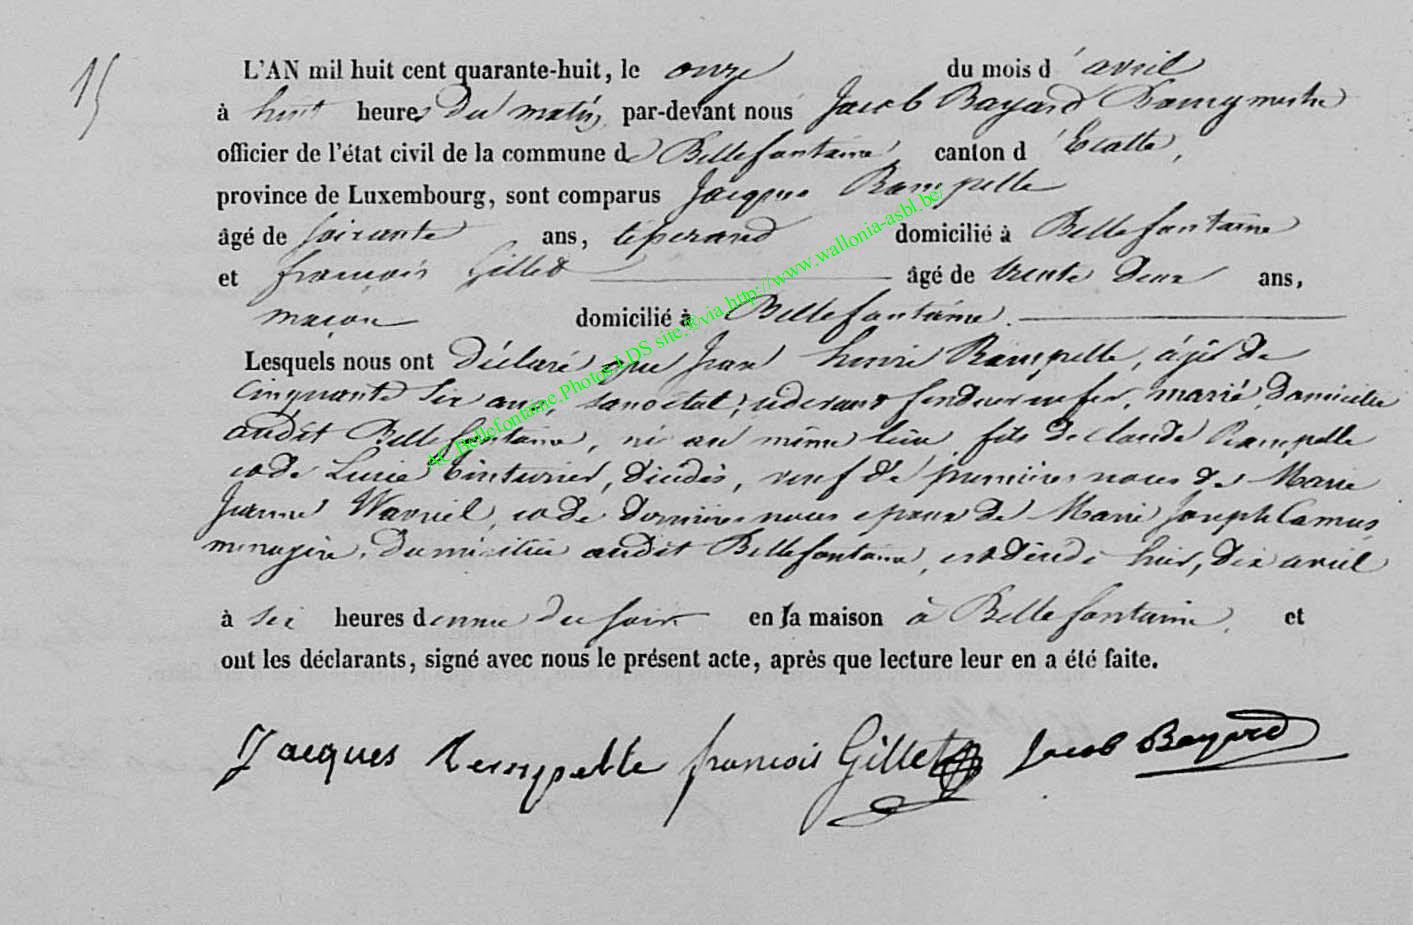 15
L'AN mil huit cent quarante-huit, le onze du mois d'avril
à huit heures du matin, par-devant nous Jacob Bayard Bourgmestre
officier de l'état civil de la commune de Bellefontaine, canton d'Etalle,
province de Luxembourg, sont comparus Jacques Rampelle
âgé de soixante ans, tisserand domicilié à Bellefontaine
et françois Gillet âgé de trente deux ans,
maçon domicilié à Bellefontaine.
Lesquels nous ont déclaré que Jean henri Rampelle, âgé de
cinquante six ans, sans état, fondeur en fer, marié, domicilié
audit Bellefontaine, né au même lieu, fils de claude Rampelle
et de Lucie tinturier, décédés, veuf de premières noces de Marie
Jeanne Warniel, et de dernières noces epoux de Marie Joseph Camus,
menagère, domiciliée audit Bellefontaine, est décédé hier, dix avril
à six heures demie du soir en sa maison à Bellefontaine, et
ont les déclarants, signé avec nous le présent acte, après que lecture leur en a été faite.
Jacques Rempelle françois Gillet Jacob Bayard
AC Bellefontaine Photos LDS site ®via http://www.wallonia-asbl.be/